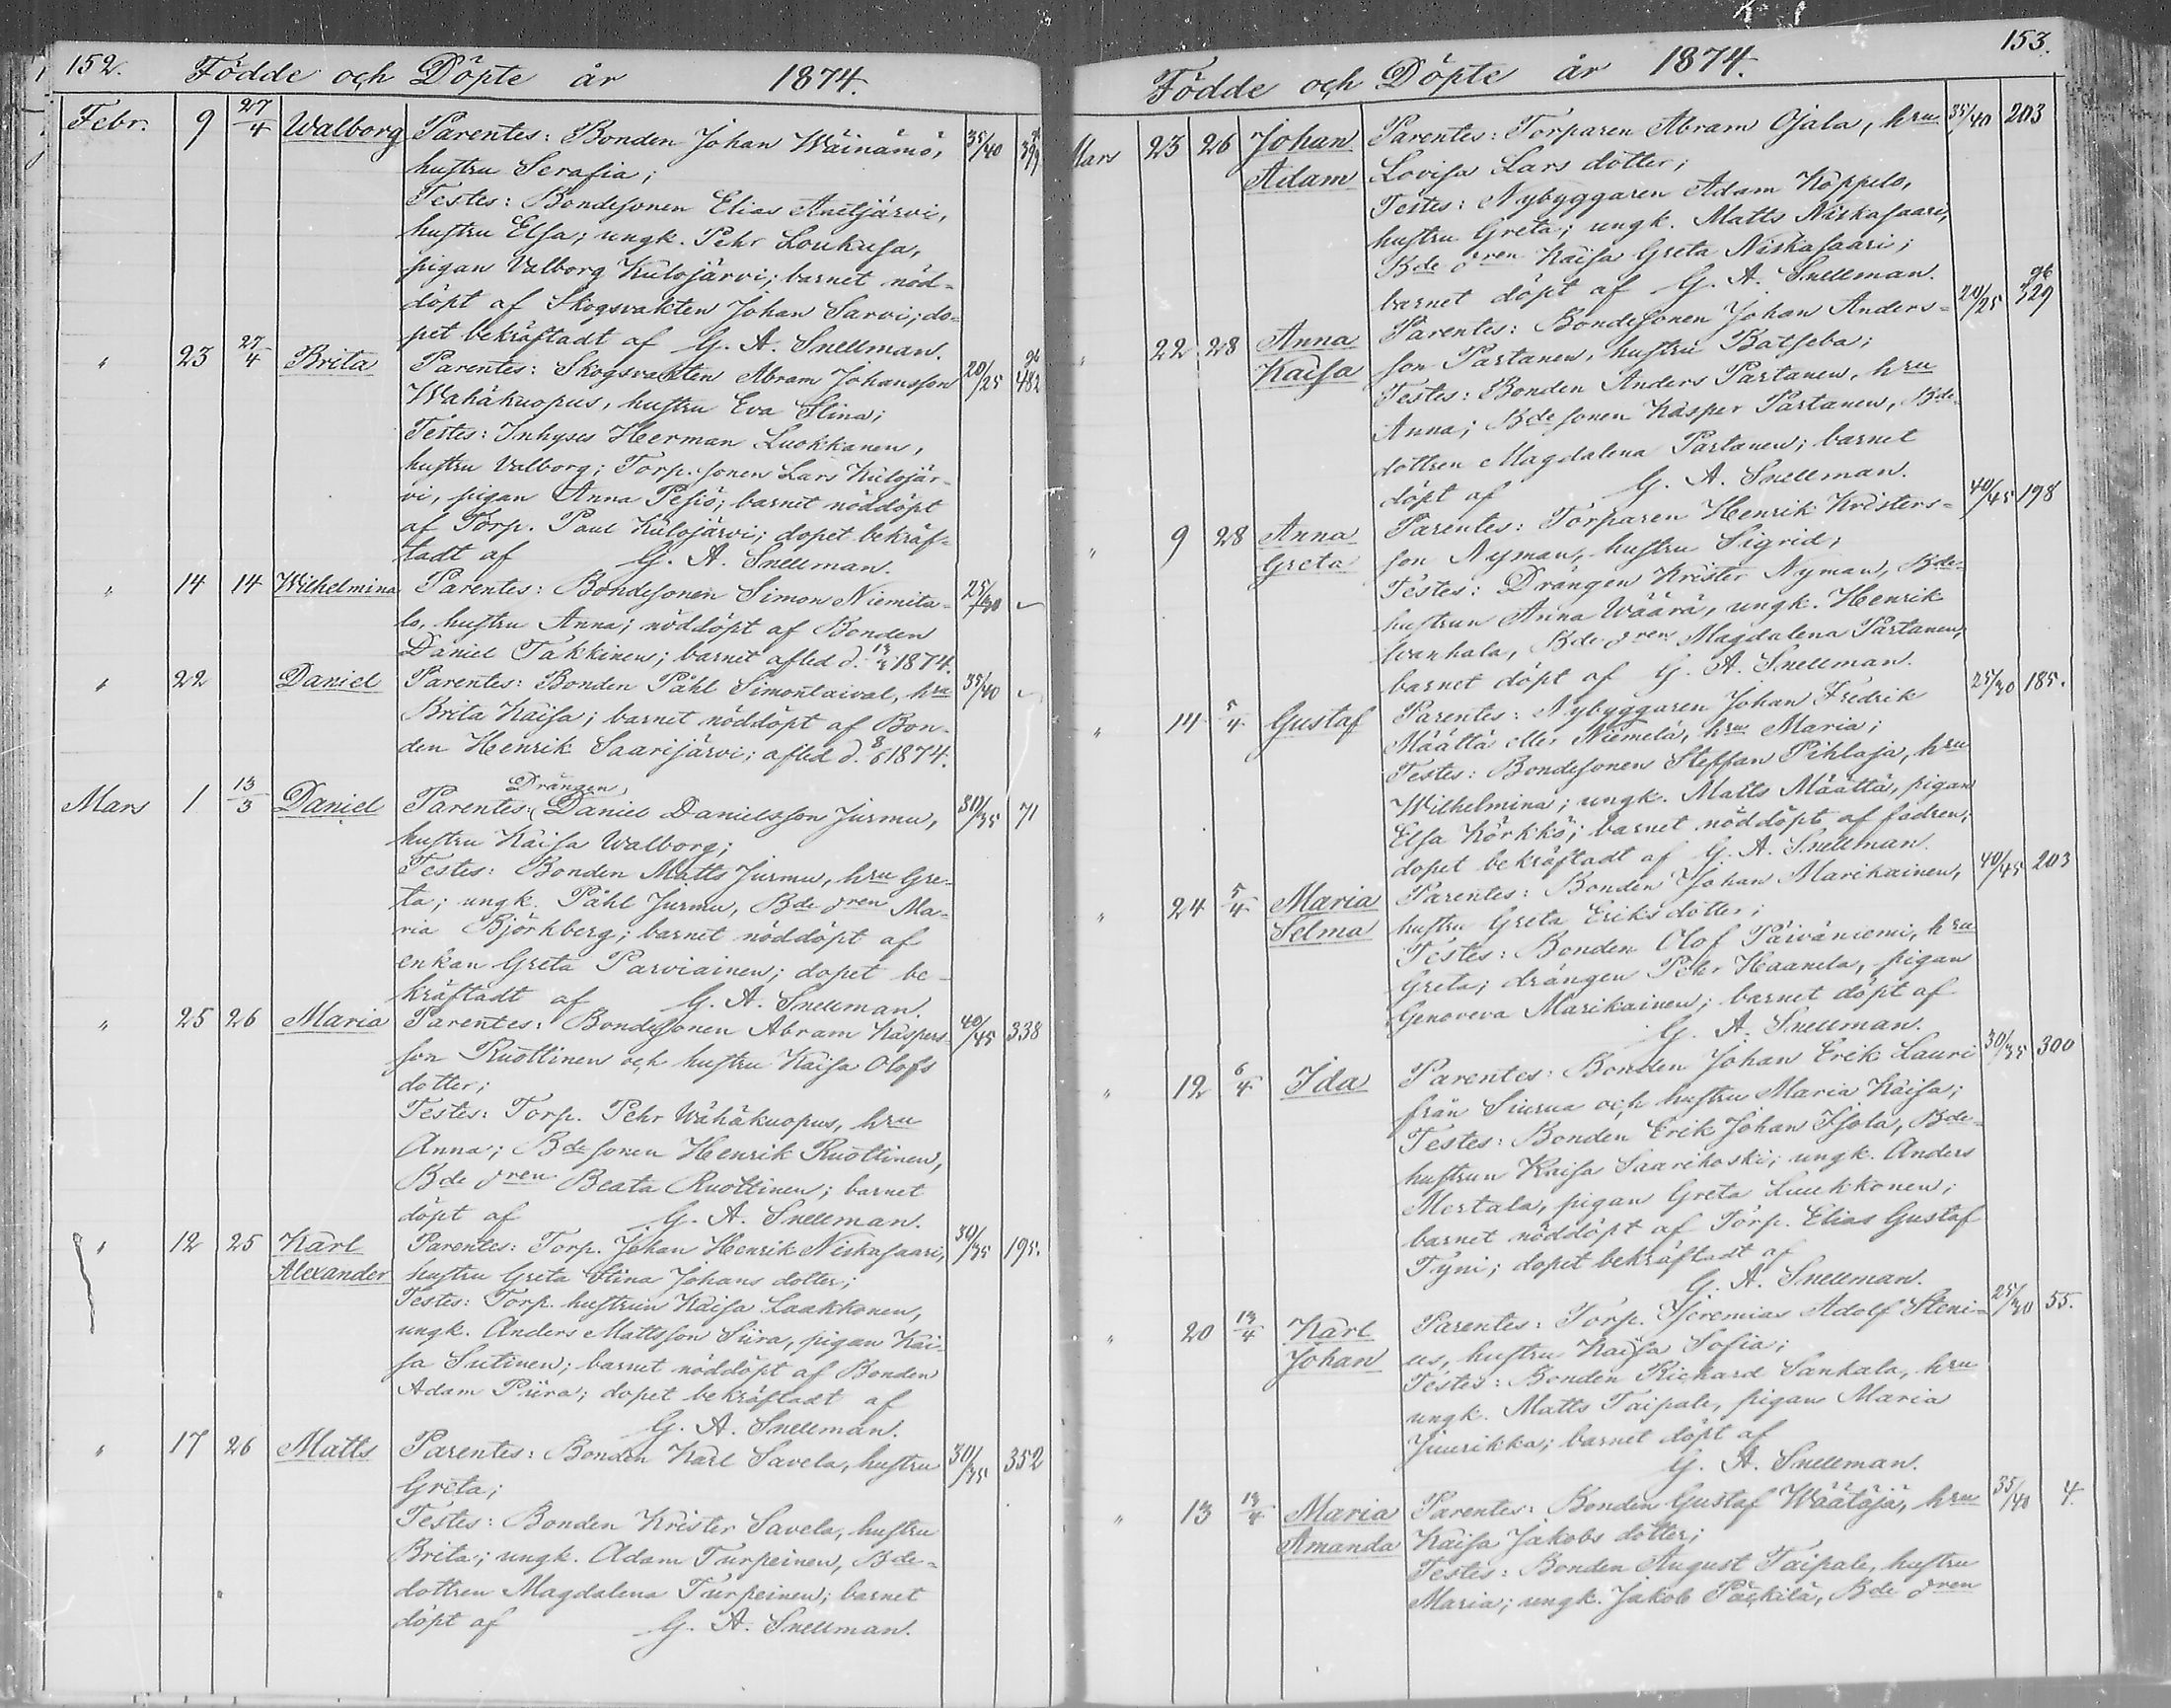 152. Födde och Döpte år 1874.
Febr. 9 27/4 Walborg Parentes: Bonden Johan Wäinämö, 35/40
hustru Serafia;
Testes: Bondesonen Elias Anetjärvi,
hustru Elsa; ungk. Pehr Loukusa,
pigan Valborg Kulojärvi; barnet nöd-
döpt af Skogsvakten Johan Sarvi; do-
pet bekräftadt af G. A. Snellman.
" 23 27/4 Brita Parentes: Skogsvakten Abram Johansson 20/25 482
Wähäkuopus, hustru Eva Stina;
Testes: Inhyses Herman Luokkanen,
hustru Valborg; Torp. sonen Lars Kulojär-
vi, pigan Anna Pesiö; barnet nöddöpt
af Torp. Paul Kulojärvi; dopet bekräf-
tadt af G. A. Snellman.
" 14 14 Wilhelmina Parentes: Bondesonen Simon Niemita- 25/30
lo, hustru Anna; nöddöpt af Bonden
Daniel Takkinen; barnet afled d. 1874.
" 22 Daniel Parentes: Bonden Påhl Simontaival, hru 35/40
Brita Kaisa; barnet nöddöpt af Bon-
den Henrik Saarijärvi; afled d. 1874.
Drängen,
Mars 1 13/3 Daniel Parentes: Daniel Danielsson Jurmu, 30/35 71
hustru Kaisa Walborg;
Testes: Bonden Matts Jurmu, hru Gre-
ta; ungk. Påhl Jurmu, Bde dren Ma-
ria Björkberg; barnet nöddöpt af
enkan Greta Parviainen; dopet be-
kräftadt af G. A. Snellman.
" 25 26 Maria Parentes: Bondesonen Abram Kaspers- 40/45 338
son Ruottinen och hustru Kaisa Olofs
dotter;
Testes: Torp. Pehr Wähäkuopus, hru
Anna; Bde sonen Henrik Ruottinen,
Bde dren Beata Ruottinen; barnet
döpt af G. A. Snellman.
" 12 25 Karl Parentes: Torp. Johan Henrik Niskasaari, 30/35 195.
Alexander hustru Greta Stina Johans dotter;
Testes: Torp. hustrun Kaisa Laakkonen,
ungk. Anders Mattsson Siira, pigan Kai-
sa Sutinen; barnet nöddöpt af Bonden
Adam Piira; dopet bekräftadt af
G. A. Snellman.
" 17 26 Matts Parentes: Bonden Karl Savela, hustru 30/35 352
Greta;
Testes: Bonden Krister Savela, hustru
Brita; ungk. Adam Turpeinen, Bde-
dottren Magdalena Turpeinen; barnet
döpt af G. A. Snellman.
Födde och Döpte år 1874. 153.
Mars 23 26 Johan Parentes: Torparen Abram Ojala, hru 35/40 203
Adam Lovisa Lars dotter;
Testes: Nybyggaren Adam Koppelo,
hustru Greta; ungk. Matts Niskasaari,
Bde dren Kaisa Greta Niskasaari;
barnet döpt af G. A. Snellman.
" 22 28 Anna Parentes: Bondesonen Johan Anders- 20/25 329
Kaisa son Partanen, hustru Batseba;
Testes: Bonden Anders Partanen, hru
Anna; Bde sonen Kasper Partanen, Bde-
dottren Magdalena Partanen; barnet
döpt af G. A. Snellman.
" 9 28 Anna Parentes: Torparen Henrik Kristers- 40/45 198
Greta son Nyman, hustru Sigrid;
Testes: Drängen Krister Nyman, Bde-
hustrun Anna Määrä, ungk. Henrik
Wanhala, Bde dren Magdalena Partanen;
barnet döpt af G. A. Snellman.
" 14 5/4 Gustaf Parentes: Nybyggaren Johan Fredrik 25/30 185.
Määttä eller Niemelä, hru Maria;
Testes: Bondesonen Steffan Pihlaja, hru
Wilhelmina; ungk. Matts Määttä, pigan
Elsa Körkkö; barnet nöddöpt af fadren;
dopet bekräftadt af G. A. Snellman.
" 24 5/4 Maria Parentes: Bonden Johan Marikainen, 40/45 203
Selma hustru Greta Eriks dotter;
Testes: Bonden Olof Päiväniemi, hru
Greta; drängen Pehr Haanela, pigan
Genoveva Marikainen; barnet döpt af
G. A. Snellman.
" 12 6/4 Ida Parentes: Bonden Johan Erik Lauri 30/35 300
från Siurua och hustru Maria Kaisa;
Testes: Bonden Erik Johan Isola, Bde-
hustrun Kaisa Saarikoski; ungk. Anders
Mertala, pigan Greta Luukkonen;
barnet nöddöpt af Torp. Elias Gustaf
Tyni; dopet bekräftadt af
G. A. Snellman.
" 20 13/4 Karl Parentes: Torp. Jeremias Adolf Steni- 25/30 55.
Johan us, hustru Kaisa Sofia;
Testes: Bonden Richard Sankala, hru
ungk. Matts Taipale, pigan Maria
Juurikka; barnet döpt af
G. A. Snellman.
" 13 13/4 Maria Parentes: Bonden Gustaf Wäätäjä, hru 35/40 4.
Amanda Kaisa Jakobs dotter;
Testes: Bonden August Taipale, hustru
Maria; ungk. Jakob Päckilä, Bde dren